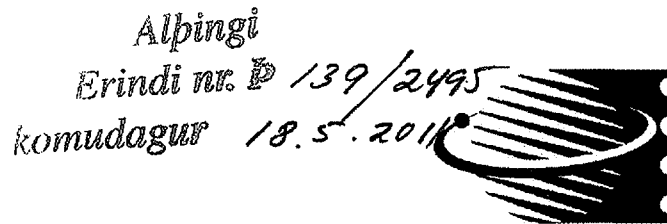 Alþingi
Erindi nr. Þ 139/2495
komudagur 18.5.2011